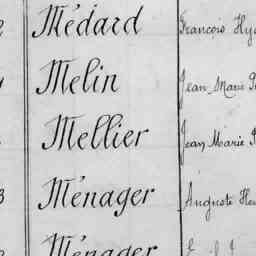 Médard François
Melin Jean Marie
Mellier Jean Marie
3 Ménager Auguste
Ménager